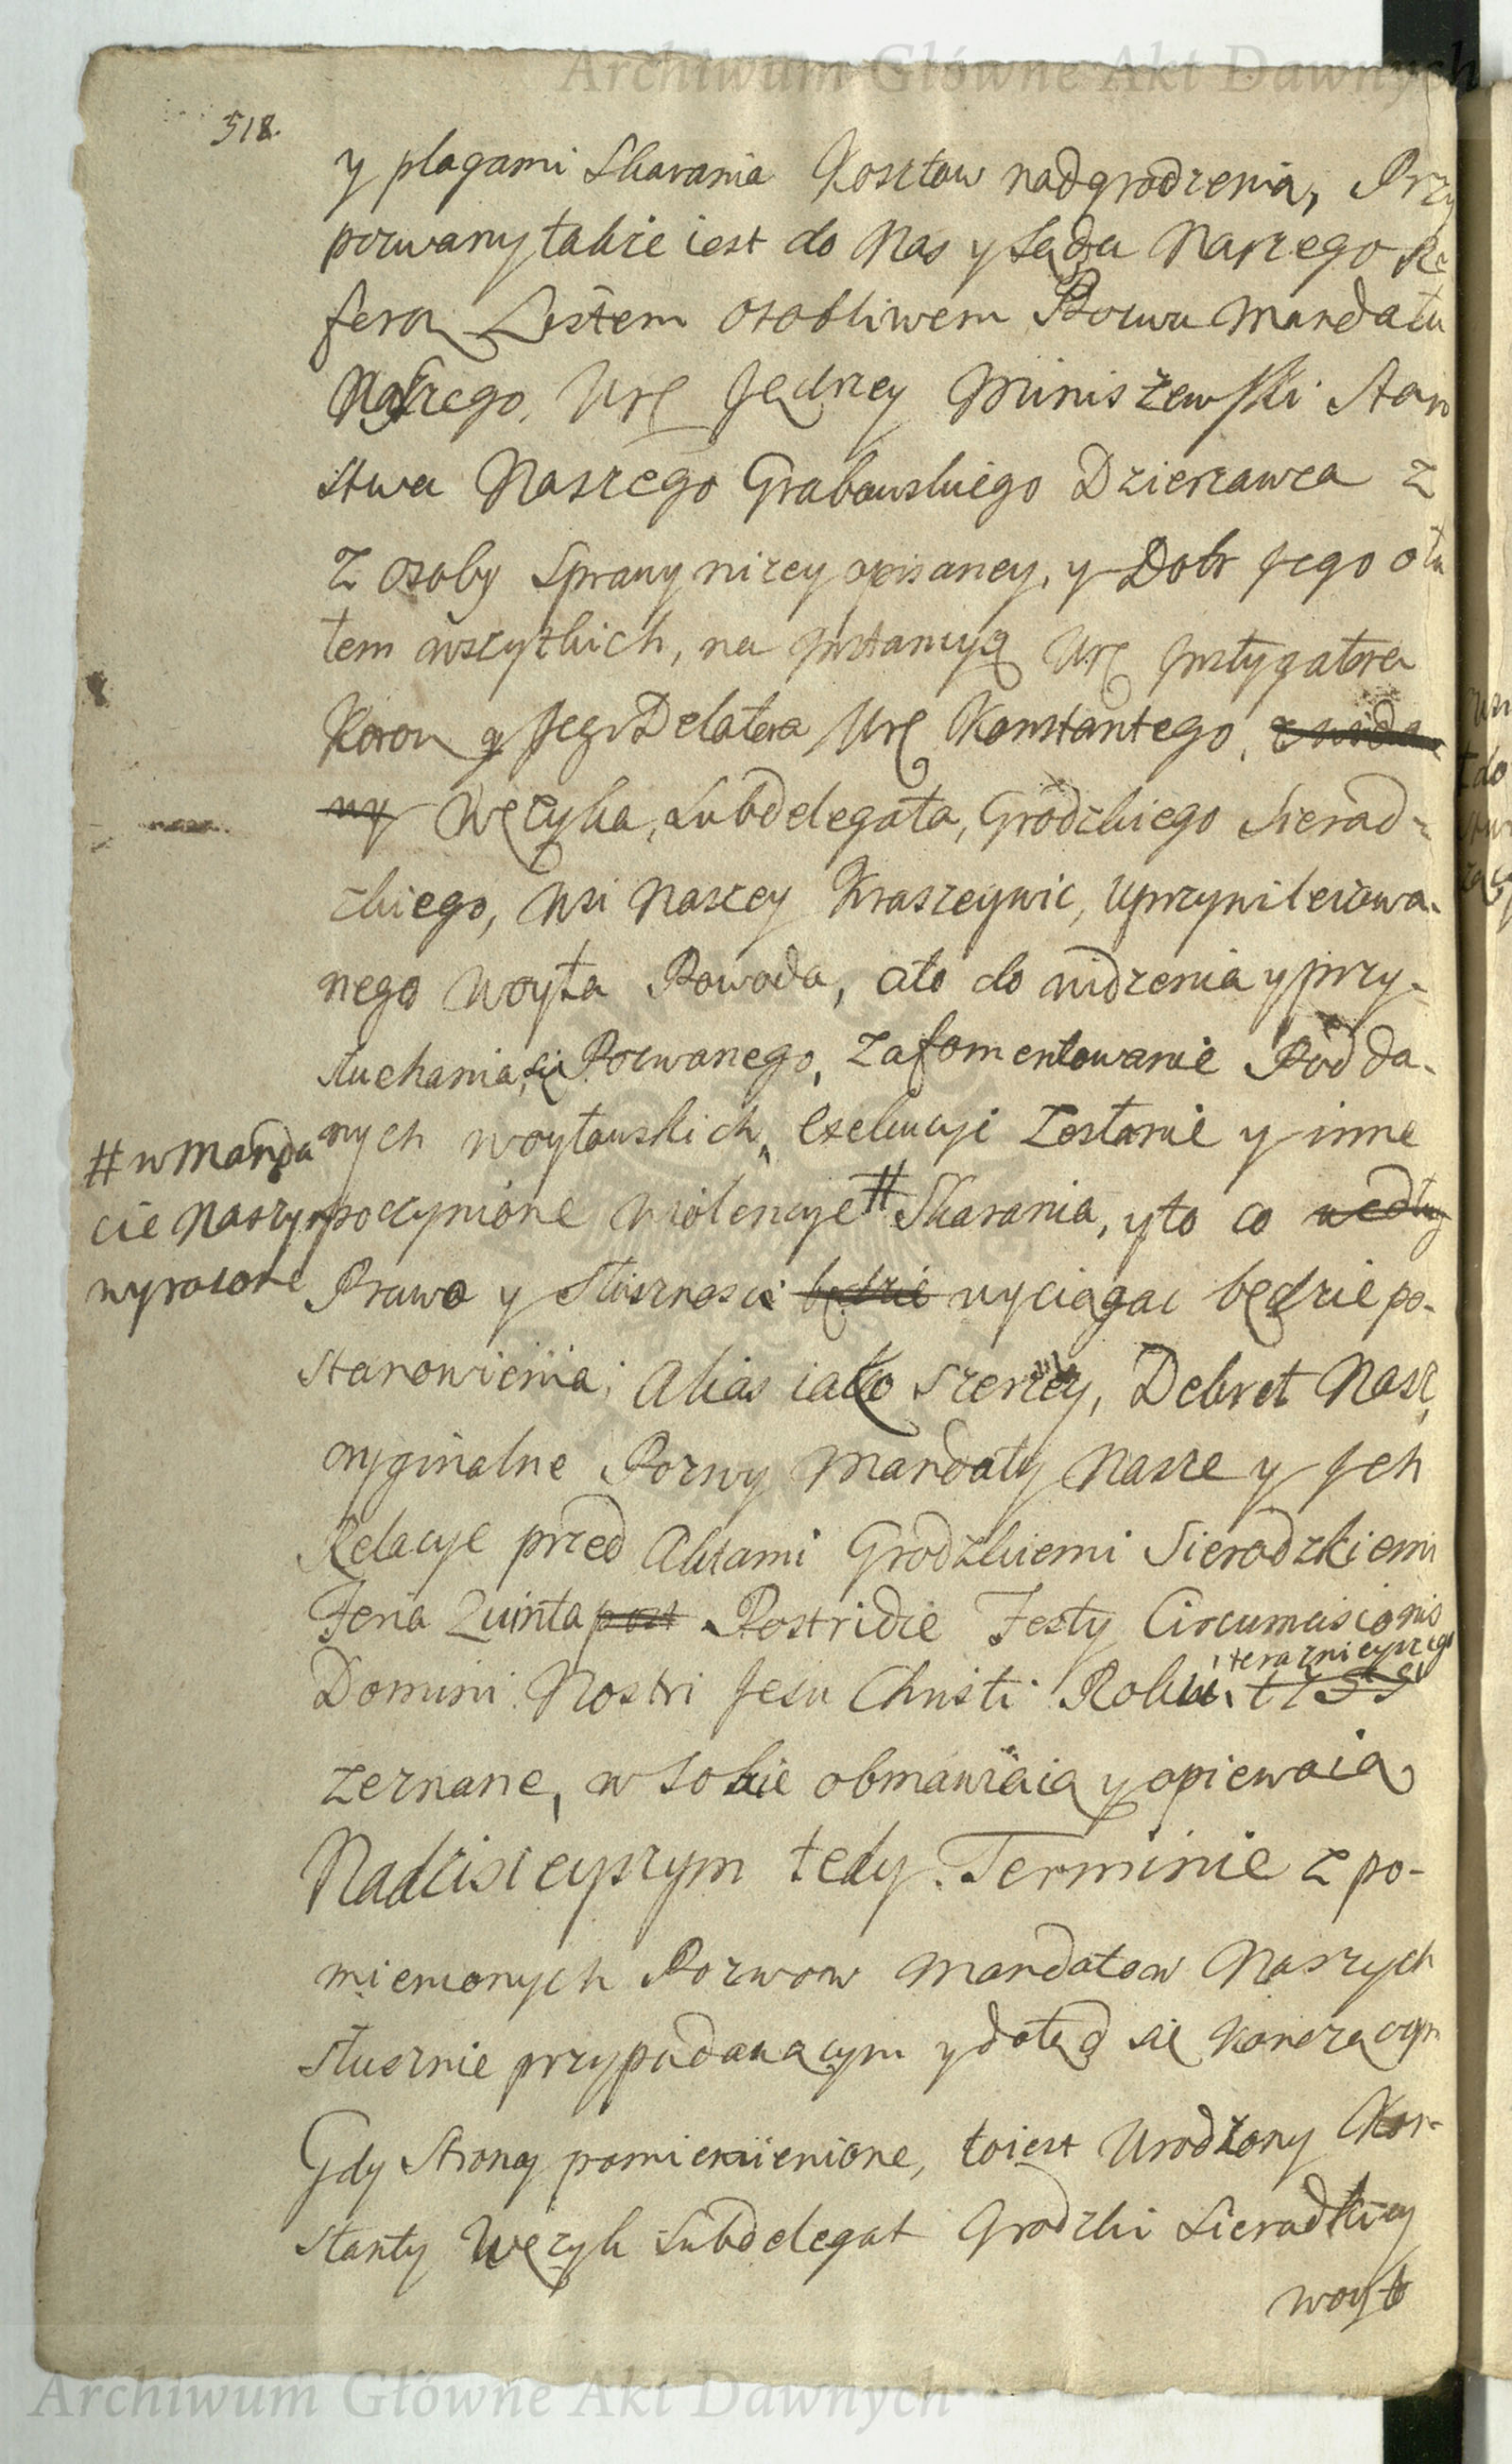 Archiwum Główne Akt Dawnych
518.
y plagami Skarania Kosztow nadgrodzenia, Przy
pozwany takze iest do Nas y Sądu Naszego Re
feron Listem osobliwem Pozwu Mandatu
Naszego. Ur Jędrzey Mniszewski Staro
stwa Naszego Grabowskiego Dzierzawca z
z osoby Sprawy nizey opisaney, y Dobr Jego ota
tem wszytkich, na Instancyą Ur Instygatora
Koron y Jego Delatora Ur Konstantego,
Węzyka, Subdelegata, Grodzkiego Sierad-
zkiego, Wsi Naszey Kraszewic, uprzywileiowa-
nego Woyta Powoda, a to do widzenia y przy-
słuchania się Pozwanego, zafomentowanie Podda-
nych woytowskich, exekucyi zostanie y inne
# w Manda
cie Naszym
wyrazone
poczynione wiolencye # Skarania, y to co według
Prawo y Słusznosci będzie wyciągac będzie po-
stanowienia; Alias iako szerzey, Dekret Nasz,
oryginalne Pozwy Mandaty Nasze y Jch
Relacye przed Aktami Grodzkiemi Sieradzkiemi
Feria Quinta post Postridie Festy Circumcisionis
Domini Nostri Jesu Christi Roku teraznieyszego 1755
zeznane, w sobie obmawiaią y opiewaią
Nadzisieyszym tedy Terminie z po-
mienionych Pozwow Mandatow Naszych
słusznie przypadaiącym y dotąd się Konczącym
Gdy Strony pomienienione, toiest Urodzony Kon-
stanty Węzyk Subdelegat Grodzki Sieradzki
woyt
Archiwum Główne Akt Dawnych